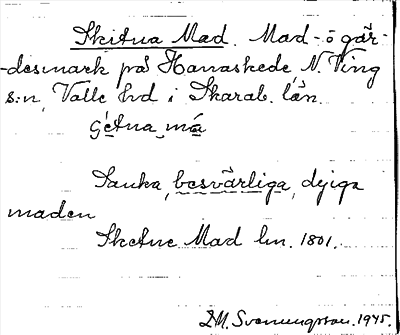 Skitna Mad. Mad- o gär-
-desmark på Hanaskede N. Ving
s:n, Valle hd i Skarab. län.
má
Sanka, besvärliga, dyiga
maden
Sketne Mad lm. 1801.
D.M. Svenungsson. 1945.